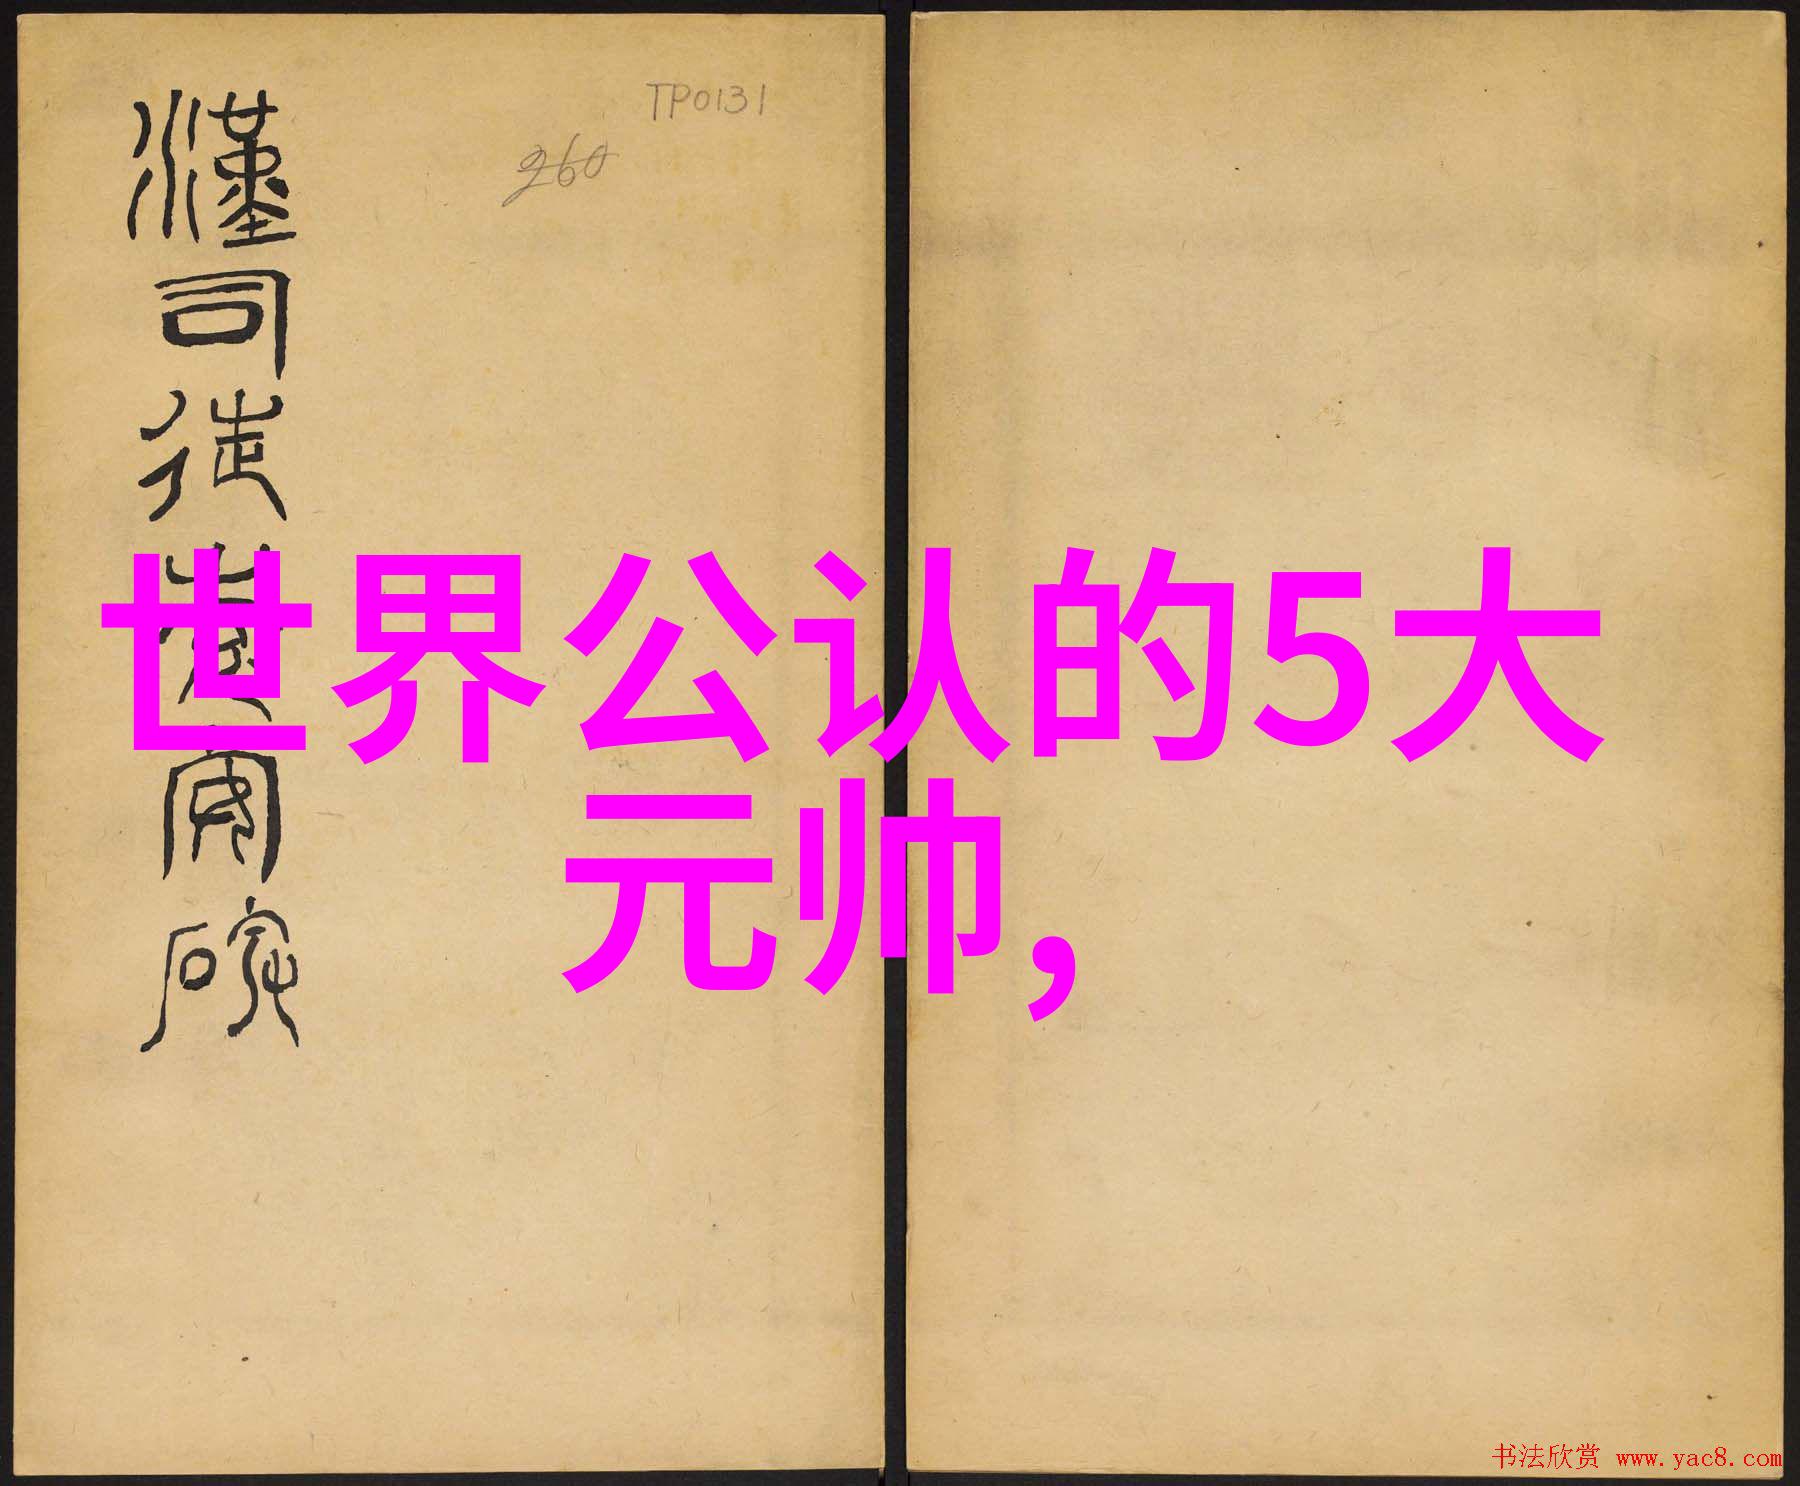 漢司徒袁安碑
TP0131
260
世界公认的5大
元帅,
书法欣赏 www.yac8.com